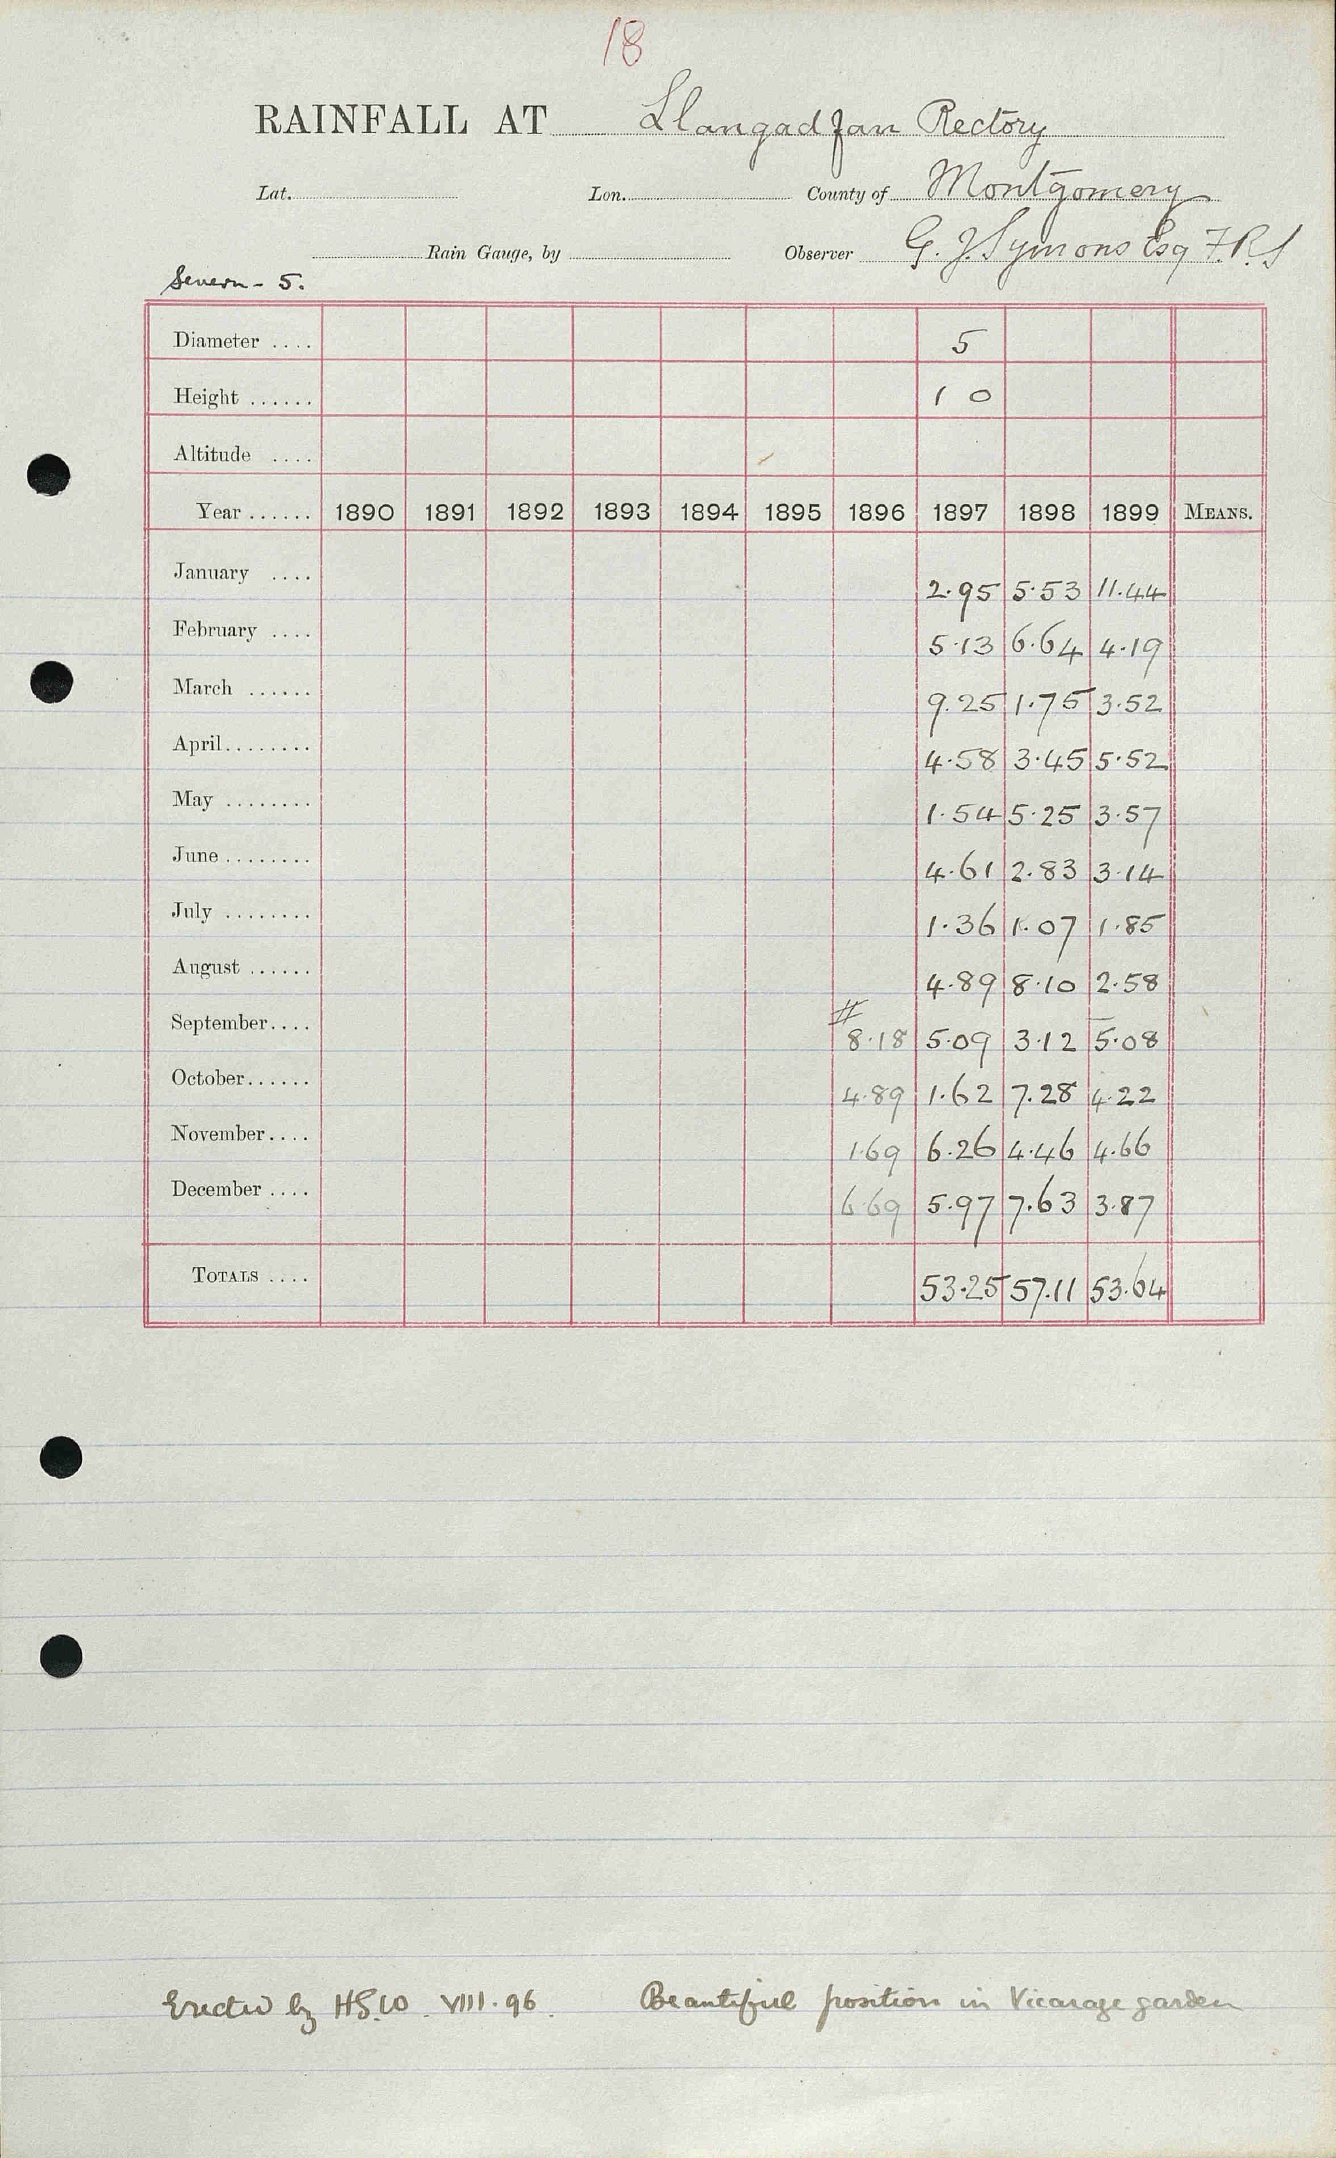 18
RAINFALL AT Llangadfan Rectory
Lat. Lon. County of Montgomery
Rain Gauge, by Observer G. J. Symons Esq F.R.S
Severn - 5.
Diameter .... 5
Height ...... 1 0
Altitude ....
Year ...... 1890 1891 1892 1893 1894 1895 1896 1897 1898 1899 MEANS.
January .... 2.95 5.53 11.44
February .... 5.13 6.64 4.19
March ...... 9.25 1.75 3.52
April........ 4.58 3.45 5.52
May ........ 1.54 5.25 3.57
June ........ 4.61 2.83 3.14
July ........ 1.36 1.07 1.85
August ...... 4.89 8.10 2.58
September.... # 8.18 5.09 3.12 5.08
October...... 4.89 1.62 7.28 4.22
November.... 1.69 6.26 4.46 4.66
December .... 6.69 5.97 7.63 3.87
TOTALS .... 53.25 57.11 53.64
Erected by HSW VIII.96. Beautiful position in Vicarage garden